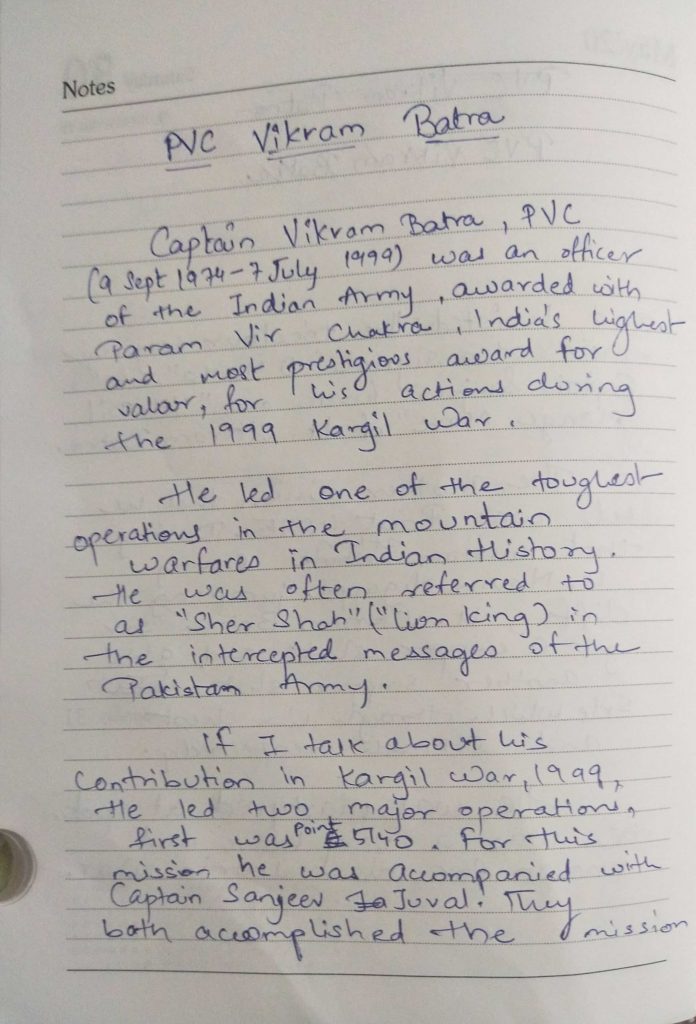 Notes
PVC Vikram Batra
Captain Vikram Batra, PVC
(9 Sept 1974-7 July 1999) was an officer
of the Indian Army, awarded with
Param Vir Chakra, India's highest
and most prestigious award for
valour, for his actions during
the 1999 Kargil War.
He led one of the toughest
operations in the mountain
warfares in Indian History.
He was often referred to
as "Sher Shah" ("lion king) in
the intercepted messages of the
Pakistan Army.
If I talk about his
contribution in Kargil War, 1999,
He led two major operations,
first was Point 5140. For this
mission he was accompanied with
Captain Sanjeev Juval. They
both accomplished the mission